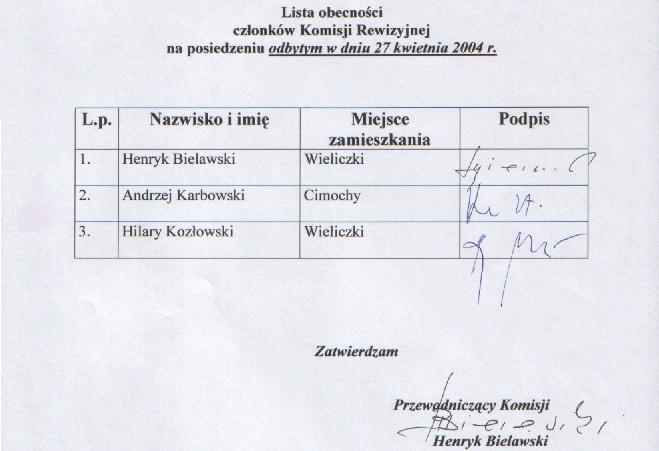 Lista obecności
członków Komisji Rewizyjnej
na posiedzeniu odbytym w dniu 27 kwietnia 2004 r.
L.p. Nazwisko i imię Miejsce zamieszkania Podpis
1. Henryk Bielawski Wieliczki
2. Andrzej Karbowski Cimochy
3. Hilary Kozłowski Wieliczki
Zatwierdzam
Przewodniczący Komisji
Henryk Bielawski